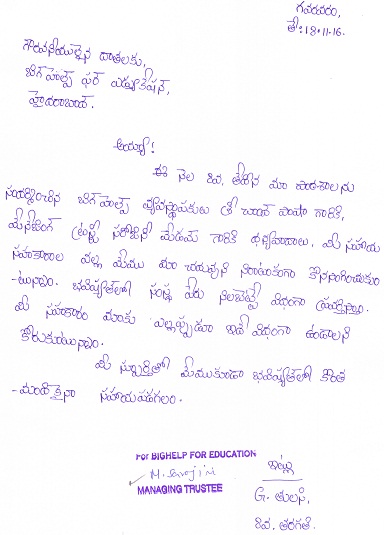 గవరవరం,
తే: 18-11-16.
గౌరవనీయులైన దాతలకు,
బిగ్ హెల్ప్ ఫర్ ఎడ్యుకేషన్,
హైదరాబాద్.
అయ్యా!
ఈ నెల 8వ తేదిన మా పాఠశాలను
సందర్శించిన బిగ్ హెల్ప్ వ్యవస్థాపకుకు శ్రీ చాంద్ పాషా గారికి,
మేనేజింగ్ ట్రస్టీ సరోజిని మేడమ్ గారికి ధన్యవాదాలు. మీ సహాయ
సహకారాల వల్ల మేము మా చదువుని నిరాటంకంగా కొనసాగించుకుం
-టున్నాం. భవిష్యత్‌లో సంస్థ పేరు నిలబెట్టే విధంగా ప్రయత్నిస్తాం.
మీ సహకారం మాకు ఎల్లప్పుడూ ఇదే విధంగా ఉండాలని
కోరుకుంటున్నాం.
మీ స్ఫూర్తితో మేముకూడా భవిష్యత్‌లో కొంత
-మందికైనా సహాయపడగలం.
For BIGHELP FOR EDUCATION
M. Sarojini
MANAGING TRUSTEE
ఇట్లు
G. తులసి,
8వ. తరగతి.